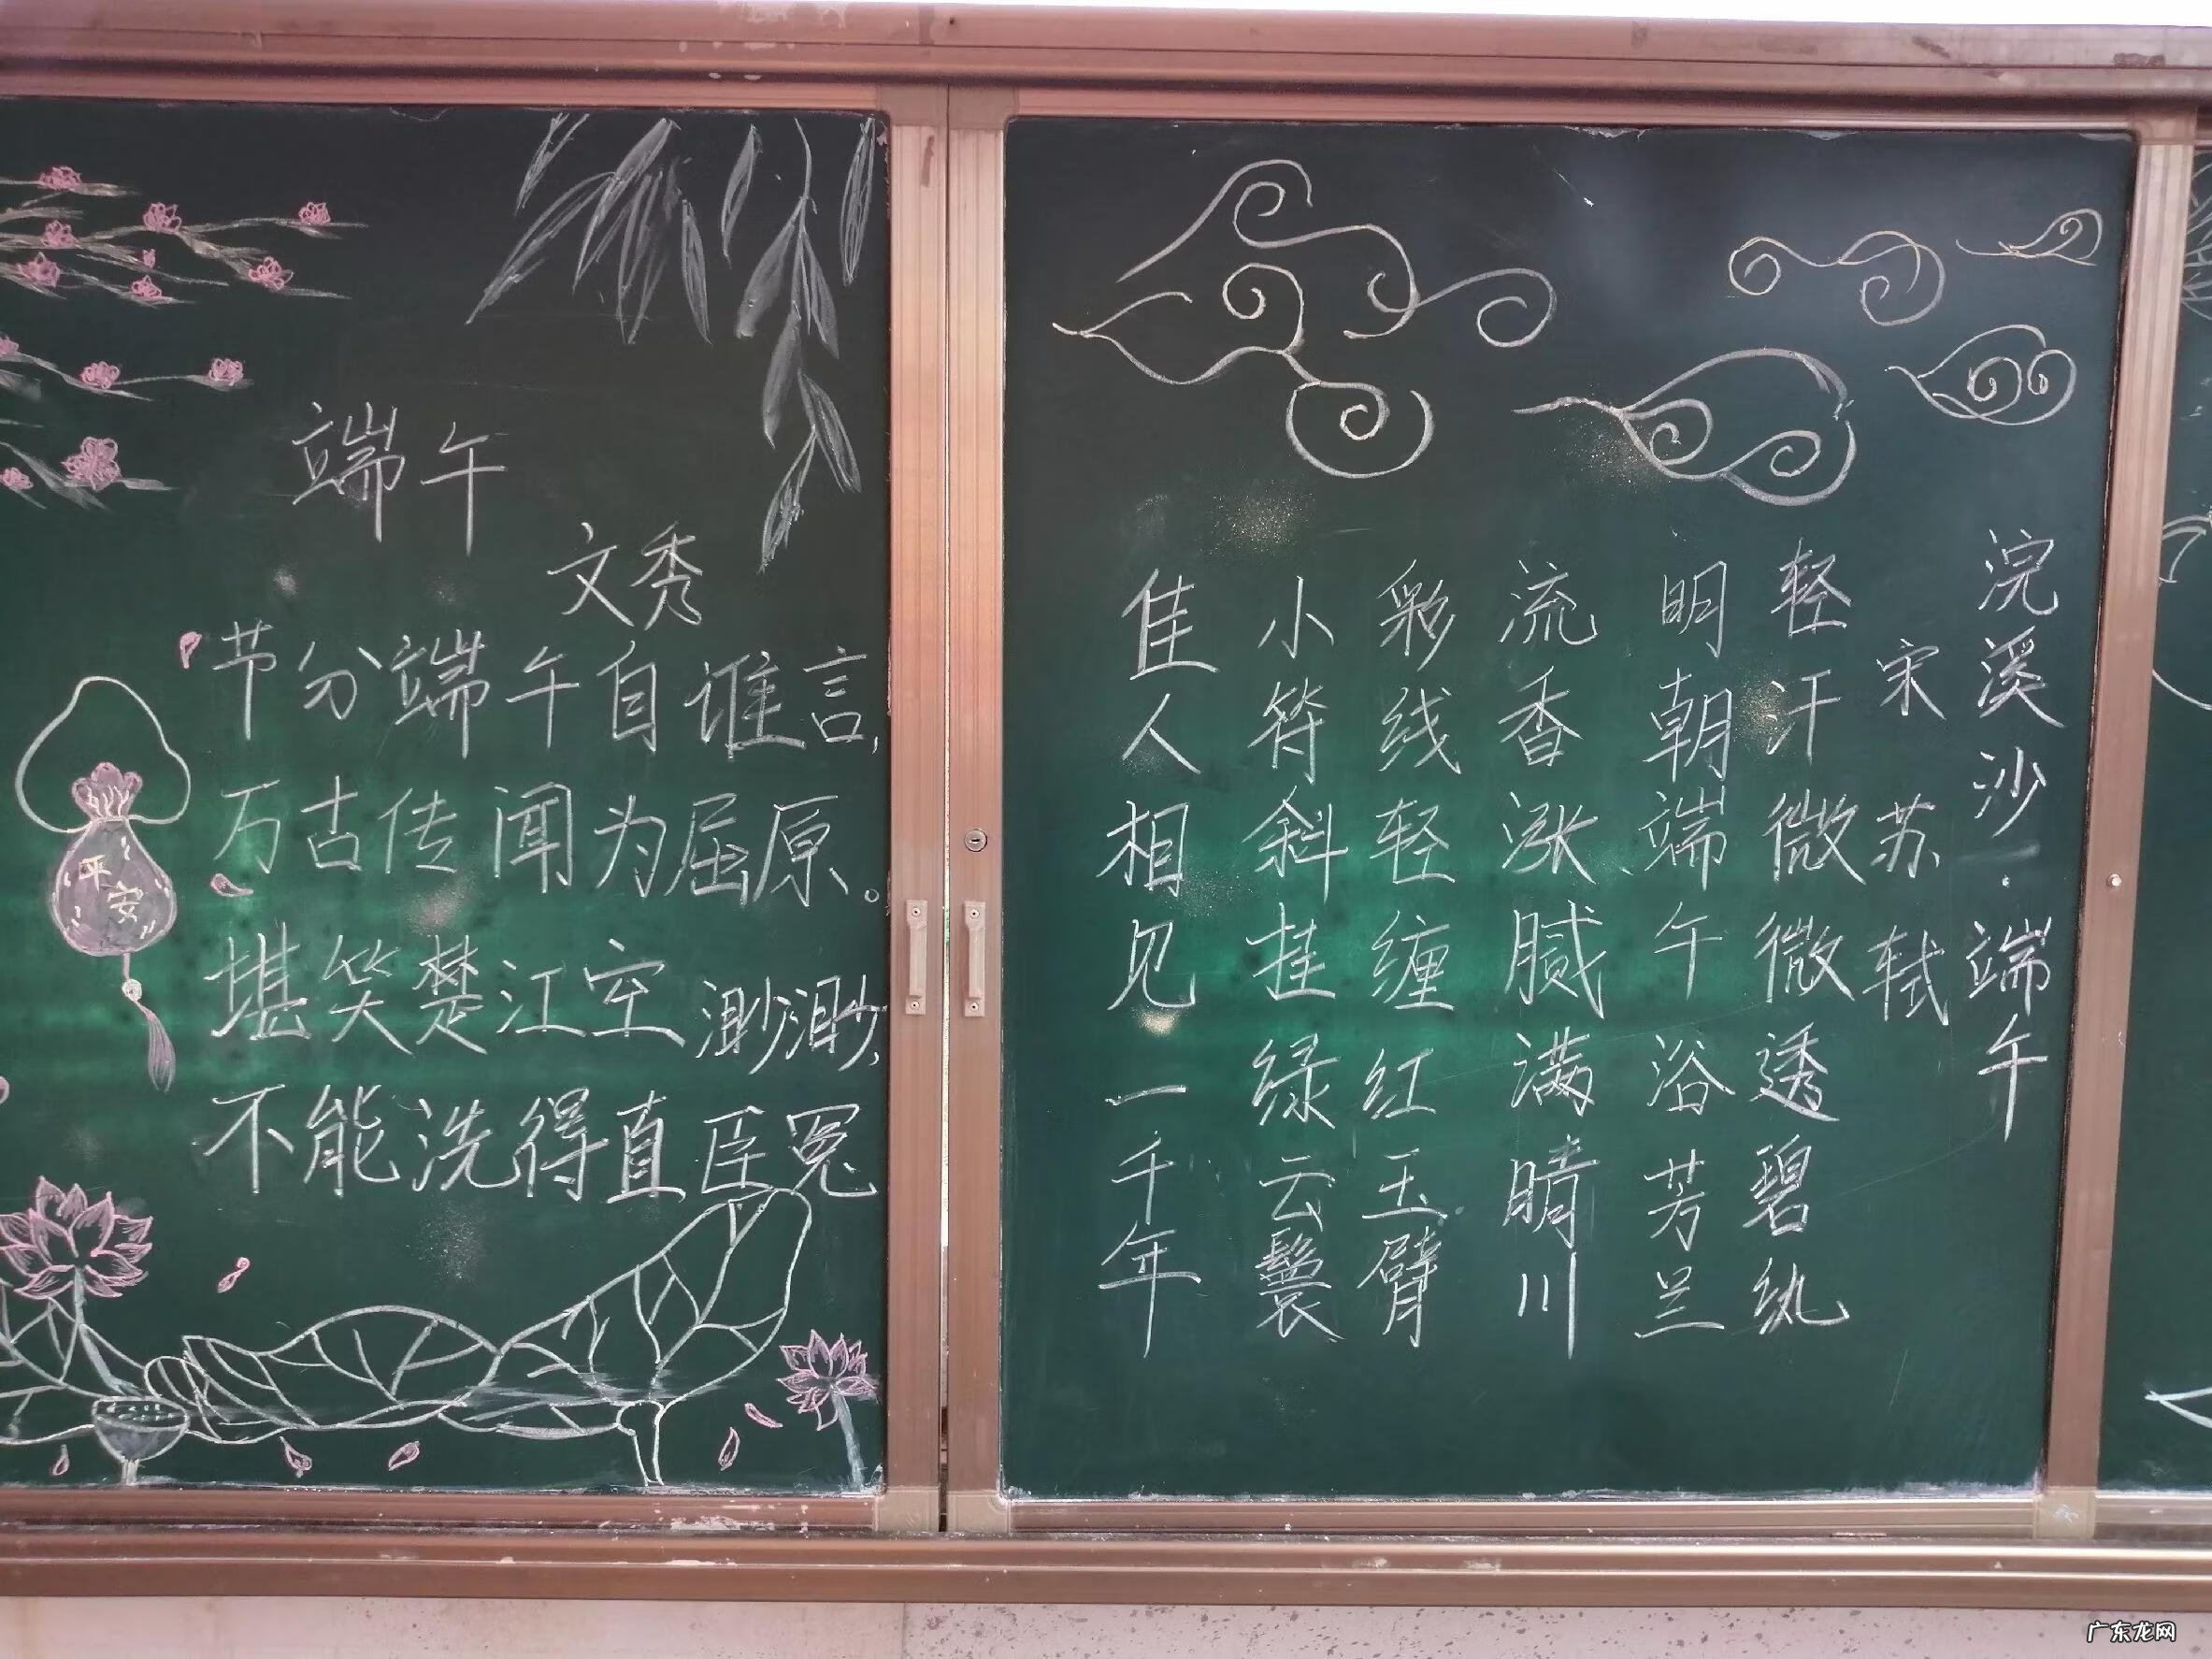 端午
文秀
节分端午自谁言,
万古传闻为屈原。
堪笑楚江空渺渺,
不能洗得直臣冤
平安
浣溪沙·端午
宋 苏轼
轻汗微微透碧纨
明朝端午浴芳兰
流香涨腻满晴川
彩线轻缠红玉臂
小符斜挂绿云鬟
佳人相见一千年
广东龙网